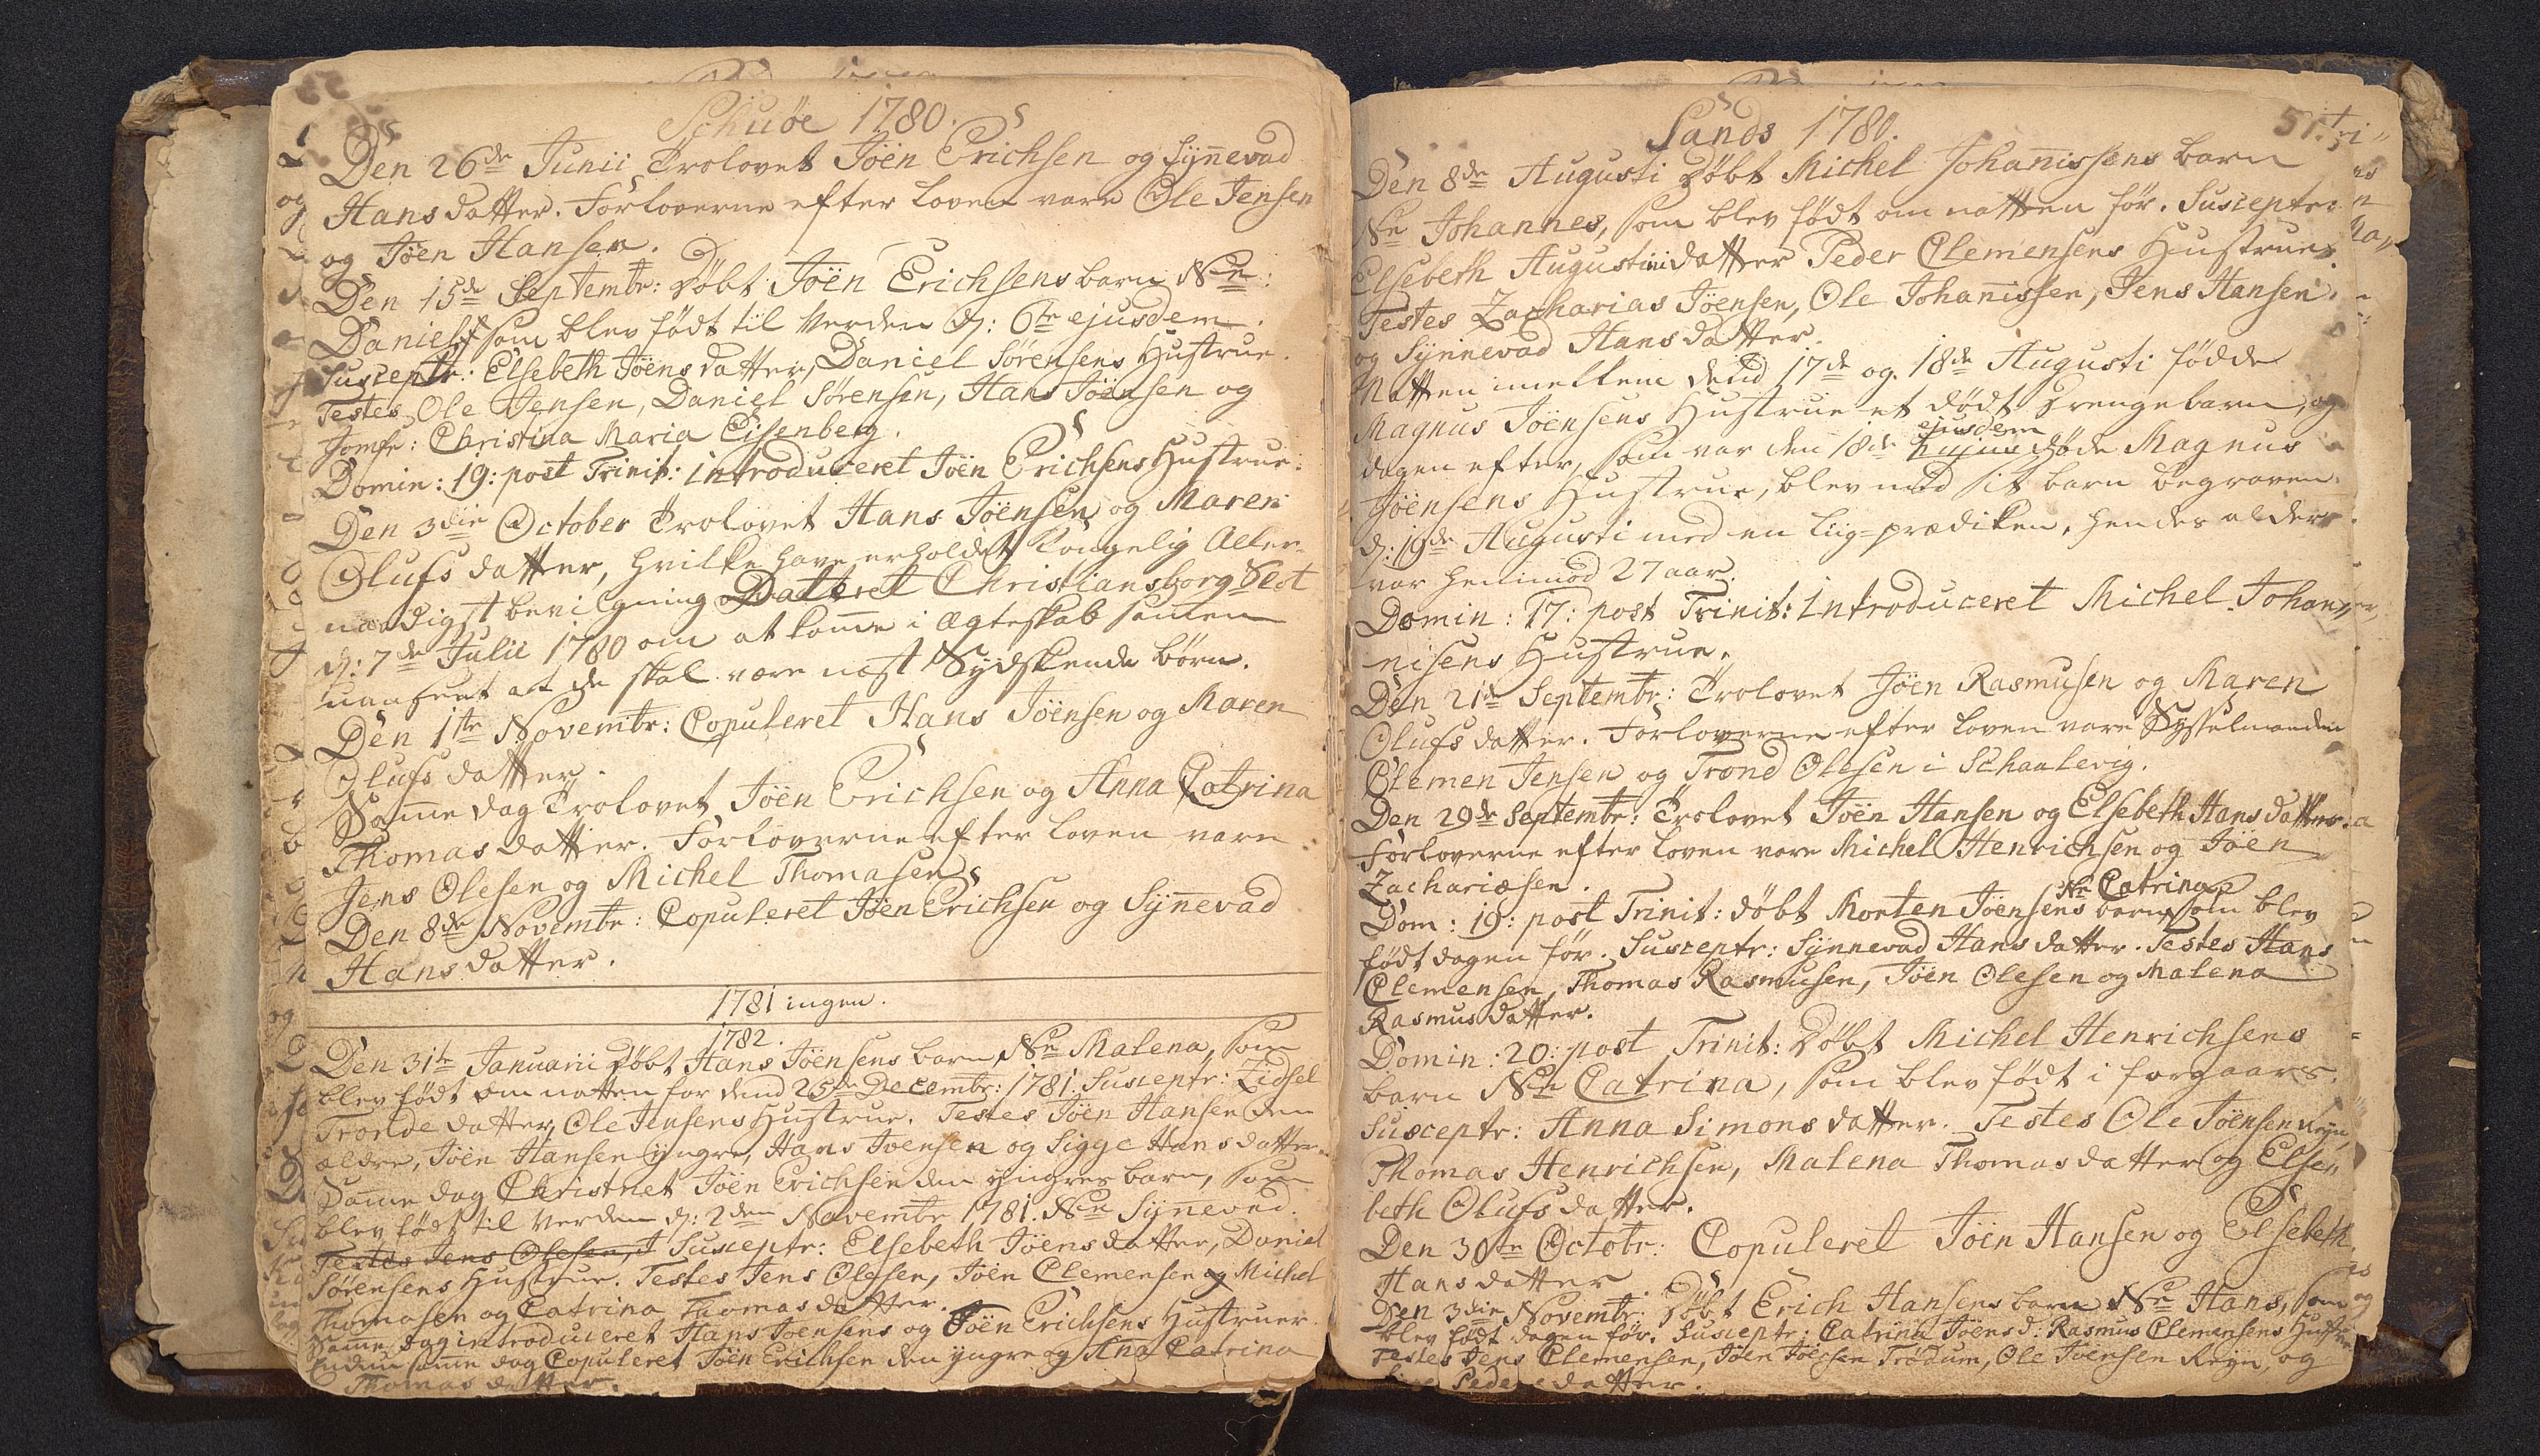 Schuöe 1780.
Den 26de Junii Trolovet Jöen Erichsen og Synnevad
Hansdatter. Forloverne efter Loven vare Ole Jensen
og Jöen Hansen.
Den 15de Septembr: döbt Jöen Erichsens barn Ne:
Daniel, som blev födt til Verden d: 6te ejusdem.
Susceptr: Elsebeth Jöensdatter, Daniel Sörensens Hustrue.
Testes Ole Jensen, Daniel Sörensen, Hans Jöensen og
Jomfr: Christina Maria Eisenberg.
Domin: 19: post Trinit: introduceret Jöen Erichsens Hustrue.
Den 3die October Trolovet Hans Jöensen og Maren
Olufsdatter, hvilke have erholdet Kongelig Aller-
naadigst bevilgning Datteret Christiansborg Slot
d: 7de Julii 1780 om at komme i Ægteskab sammen
uanseet at de skal være næst Sydskende börn.
Den 1te Novembr: Copuleret Hans Jöensen og Maren
Olufsdatter.
Samme dag Trolovet Jöen Erichsen og Anna Catrina
Thomasdatter. Forloverne efter Loven vare
Jens Olesen og Michel Thomasen
Den 8de Novembr: Copuleret Jöen Erichsen og Synnevad
Hansdatter.
1781 ingen.
1782.
Den 31te Januarii döbt Hans Jöensens barn Ne Malena, som
blev födt om natten for dend 25de Decembr: 1781. Susceptr: Zidsel
Trondedatter, Ole Jensens Hustrue. Testes Jöen Hansen den
ældre, Jöen Hansen yngre, Hans Ivensen og Sigge Hansdatter.
Samme dag Christnet Jöen Erichsen den yngres barn, som
blev födt til Verden d: 2den Novembr 1781. Ne Synnevad.
Testes Jens Olesen, J Susceptr: Elsebeth Jöensdatter, Daniel
Sörensens Hustrue. Testes Jens Olesen, Jöen Clemensen og Michel
Thomasen og Catrina Thomasdatter.
Samme dag introduceret Hans Joensens og Jöen Erichsens Hustruer.
Endnu samme dag Copuleret Jöen Erichsen den yngre og Ana Catrina
Thomasdatter.
Sands 1780.
51.
Den 8de Augusti döbt Michel Johannissens barn
Ne Johannes, som blev födt om natten för. Susceptr:
Elsebeth Augustinidatter Peder Clemensens Hustrue.
Testes Zacharias Jöensen, Ole Johannissen, Jens Hansen
og Synnevad Hansdatter.
Natten imellem dend 17de og 18de Augusti fødde
Magnus Jöensens Hustrue et dödt drengebarn, og
ejusdem
dagen efter, som var den 18de hujus döde Magnus
Jöensens Hustrue, blev med sit barn begraven
d: 19de Augusti med en liig-prædiken, hendes alder
var henimod 27 aar.
Domin: 17: post Trinit: introduceret Michel Johan-
nisens Hustrue.
Den 21de Septembr: Trolovet Jöen Rasmusen og Maren
Olufsdatter. Forloverne efter Loven vare Sysselmanden
Clemen Jensen og Trond Olesen i Schaalevig.
Den 29de Septembr: Trolovet Jöen Hansen og Elsebeth Hansdatter.
Forloverne efter Loven vare Michel Henrichsen og Jöen
Zachariæsen.
Ne Catrina
Dom: 19: post Trinit: döbt Morten Jöensens barn, som blev
födt dagen för. Susceptr: Synnevad Hansdatter. Testes Hans
Clemensen, Thomas Rasmusen, Jöen Olesen og Malena
Rasmusdatter.
Domin: 20: post Trinit: döbt Michel Henrichsens
barn Ne Catrina, som blev födt i forgaars.
Susceptr: Anna Simonsdatter. Testes Ole Jöensen Reyn,
Thomas Henrichsen, Malena Thomasdatter og Else-
beth Olufsdatter.
Den 30te Octobr: Copuleret Jöen Hansen og Elsebeth
Hansdatter
Den 3die Novembr: döbt Erich Hansens barn Ne Hans, som
blev födt dagen för. Susceptr: Catrina Jöensd: Rasmus Clemensens Hustr
Testes Jens Clemensen, Jöen Jöensen Trödum, Ole Joensen Reyn, og
Pedersdatter.